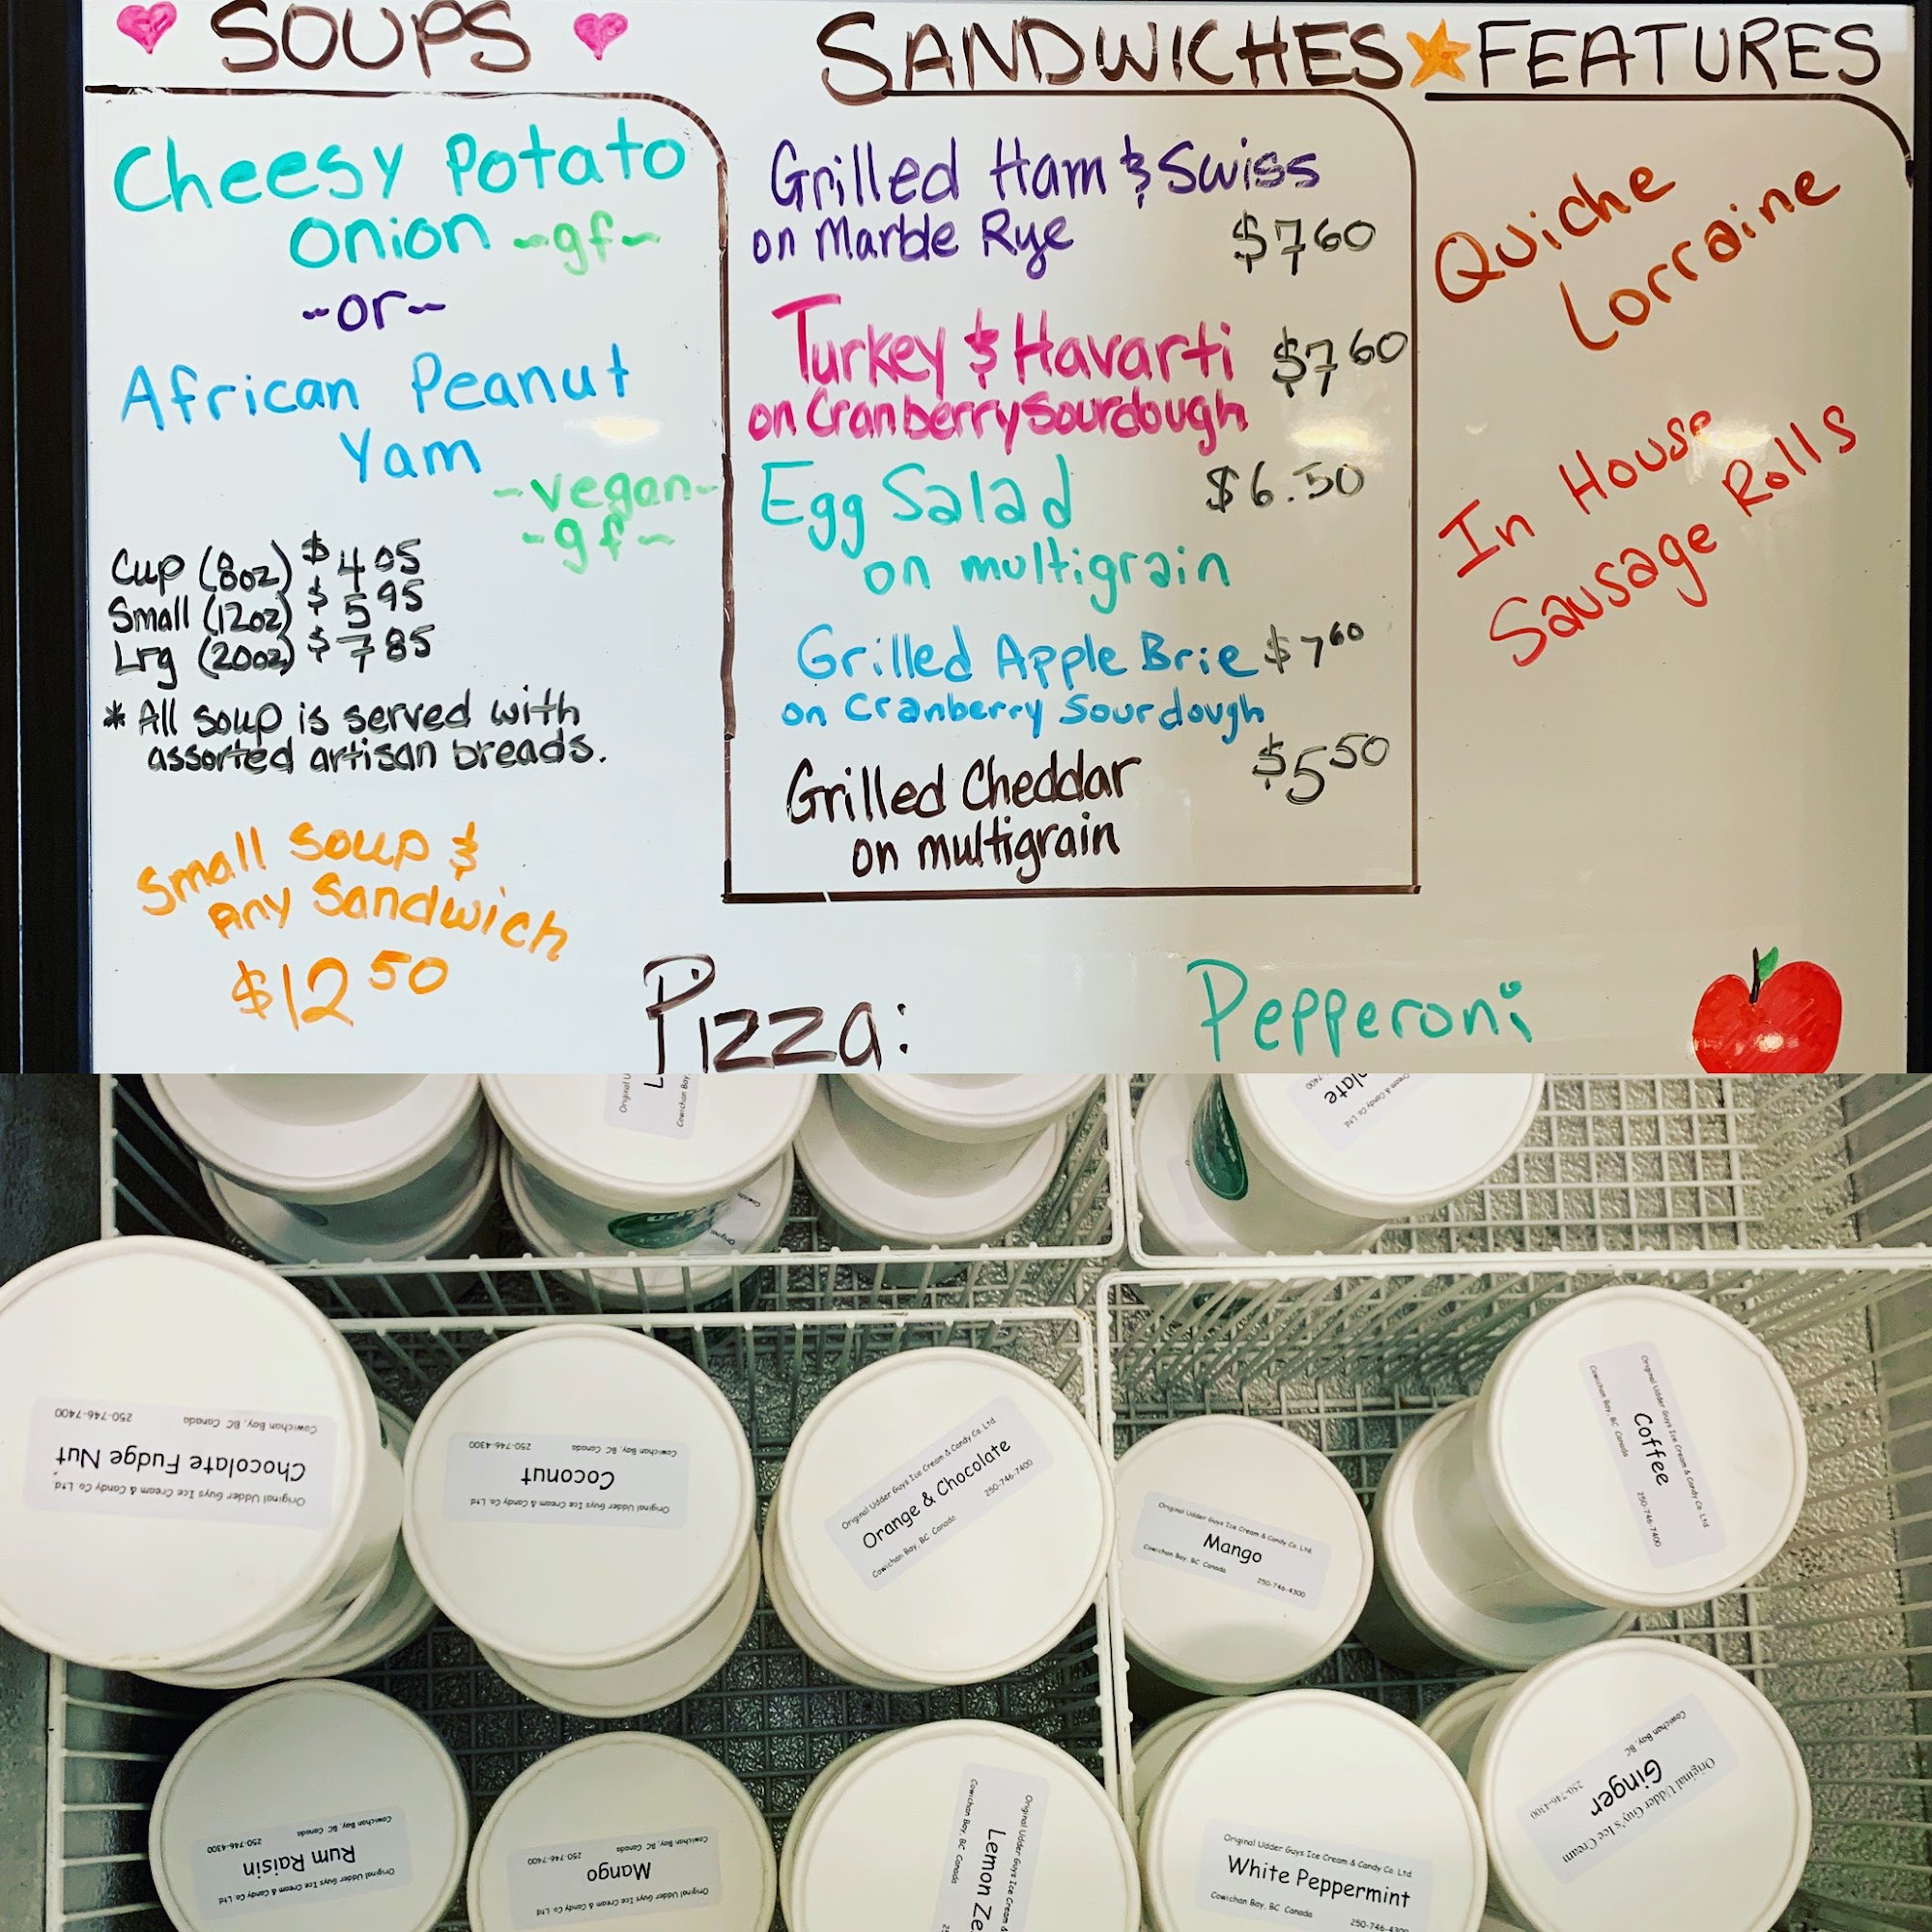 SOUPS
Cheesy Potato
Onion -gf-
-or-
African Peanut
Yam
-vegan-
-gf-
Cup (8oz) $4 05
Small (12oz) $5 95
Lrg (20oz) $7 85
* All soup is served with
assorted artisan breads.
Small Soup &
Any Sandwich
$12 50
SANDWICHES
Grilled Ham & Swiss
on Marble Rye $7 60
Turkey & Havarti $7 60
on Cranberry Sourdough
Egg Salad $6.50
on multigrain
Grilled Apple Brie $7 60
on Cranberry Sourdough
Grilled Cheddar $5 50
on multigrain
FEATURES
Quiche
Lorraine
In House
Sausage Rolls
Pizza: Pepperoni
Original Udder Guys Ice Cream & Candy Co. Ltd.
Chocolate Fudge Nut
Cowichan Bay, BC Canada 250-746-7400
Original Udder Guys Ice Cream & Candy Co. Ltd.
Coconut
Cowichan Bay, BC Canada 250-746-4300
Original Udder Guys Ice Cream & Candy Co. Ltd.
Orange & Chocolate
Cowichan Bay, BC Canada 250-746-7400
Original Udder Guys Ice Cream & Candy Co. Ltd.
Mango
Cowichan Bay, BC Canada 250-746-4300
Original Udder Guys Ice Cream & Candy Co. Ltd.
Coffee
Cowichan Bay, BC Canada 250-746-7400
Original Udder Guys Ice Cream & Candy Co. Ltd.
Rum Raisin
Cowichan Bay, BC Canada 250-746-4300
Original Udder Guys Ice Cream & Candy Co. Ltd.
Mango
Cowichan Bay, BC Canada 250-746-7400
Original Udder Guys Ice Cream &
Lemon
Cowichan Bay, BC Canada
Original Udder Guys Ice Cream & Candy Co. Ltd.
White Peppermint
Cowichan Bay, BC Canada 250-746-4300
Original Udder Guy's Ice Cream
Ginger
Cowichan Bay, BC 250-746-4300